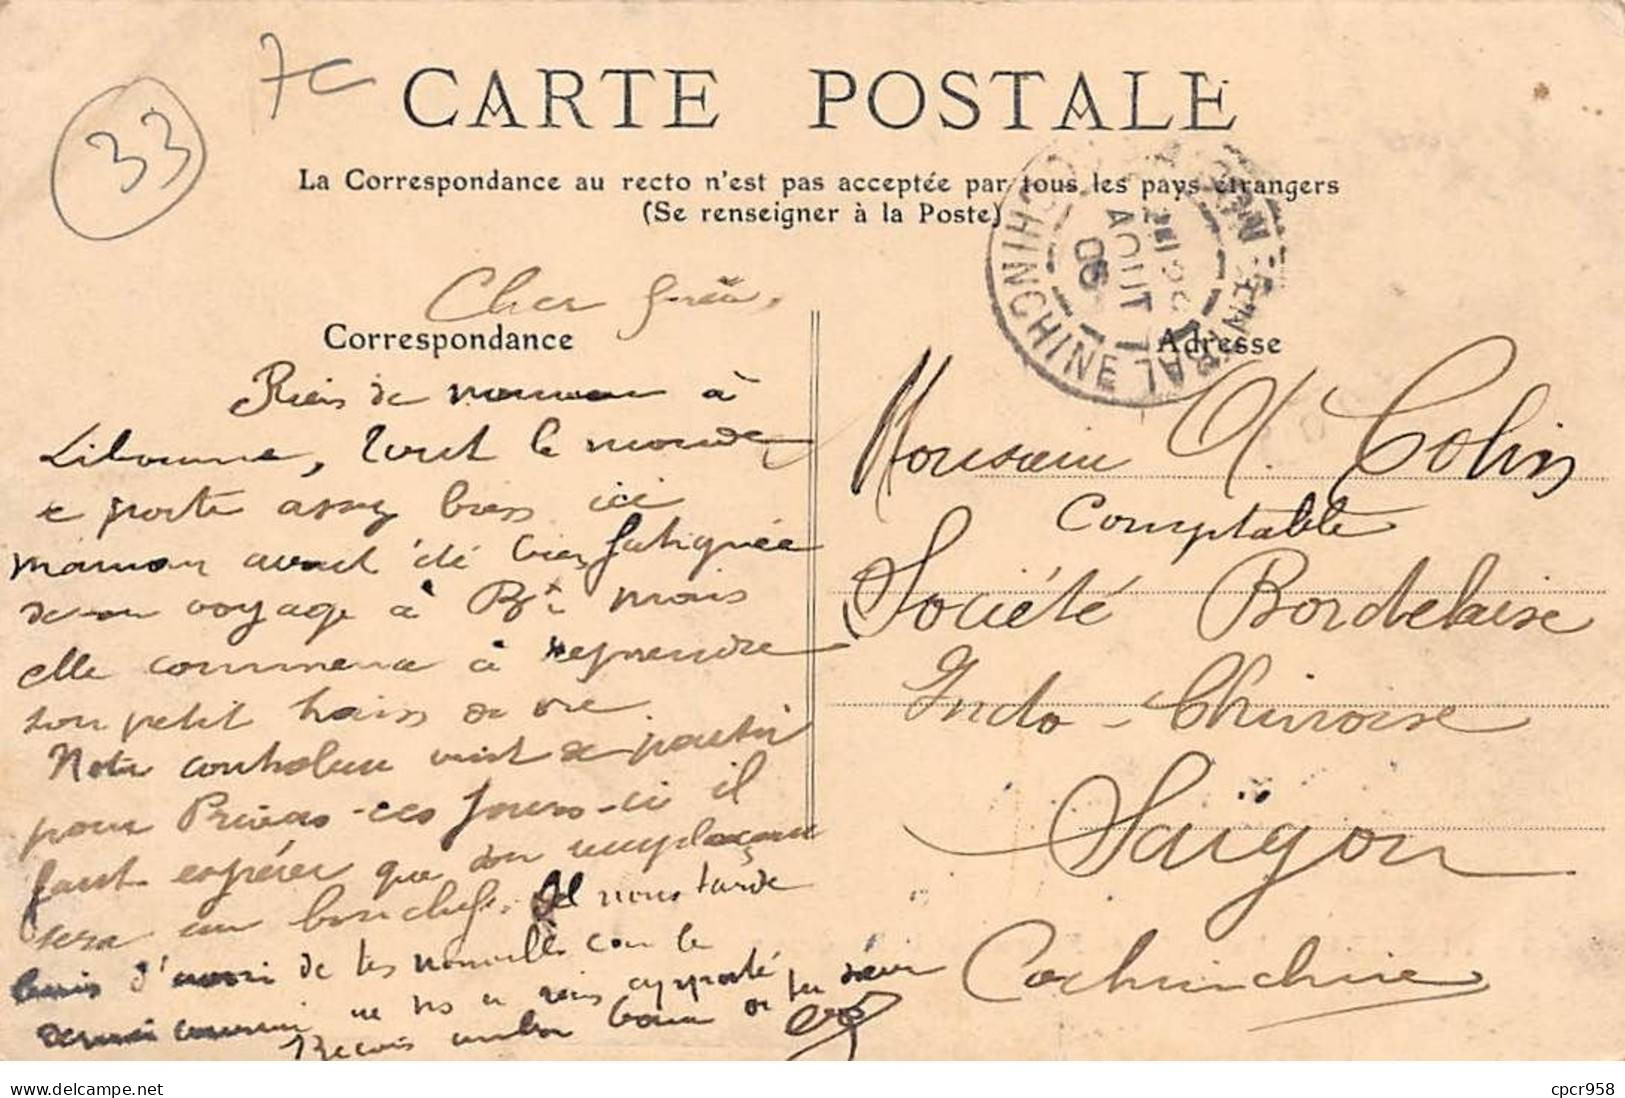 33
7c
CARTE POSTALE
La Correspondance au recto n'est pas acceptée par tous les pays étrangers
(Se renseigner à la Poste)
COCHINCHINE
AOUT
05
Cher
Correspondance
Adresse
Rien de nouveau à
Libourne, tout le monde
se porte assez bien ici
maman avait été bien fatiguée
de son voyage à Bx mais
elle commence à reprendre
son petit train de vie
Notre controleur vient de partir
pour Privas - ces jours-ci il
faut espérer que son remplaçant
sera un bon chef. Il nous tarde
d'avoir de tes nouvelles car le
dernier courrier ne ns a rien apporté
Reçois un bon de ta sœur
Monsieur A. Colin
Comptable
Société Bordelaise
Indo-Chinoise
Saïgon
Cochinchine
https://www.delcampe.net
cpcr958